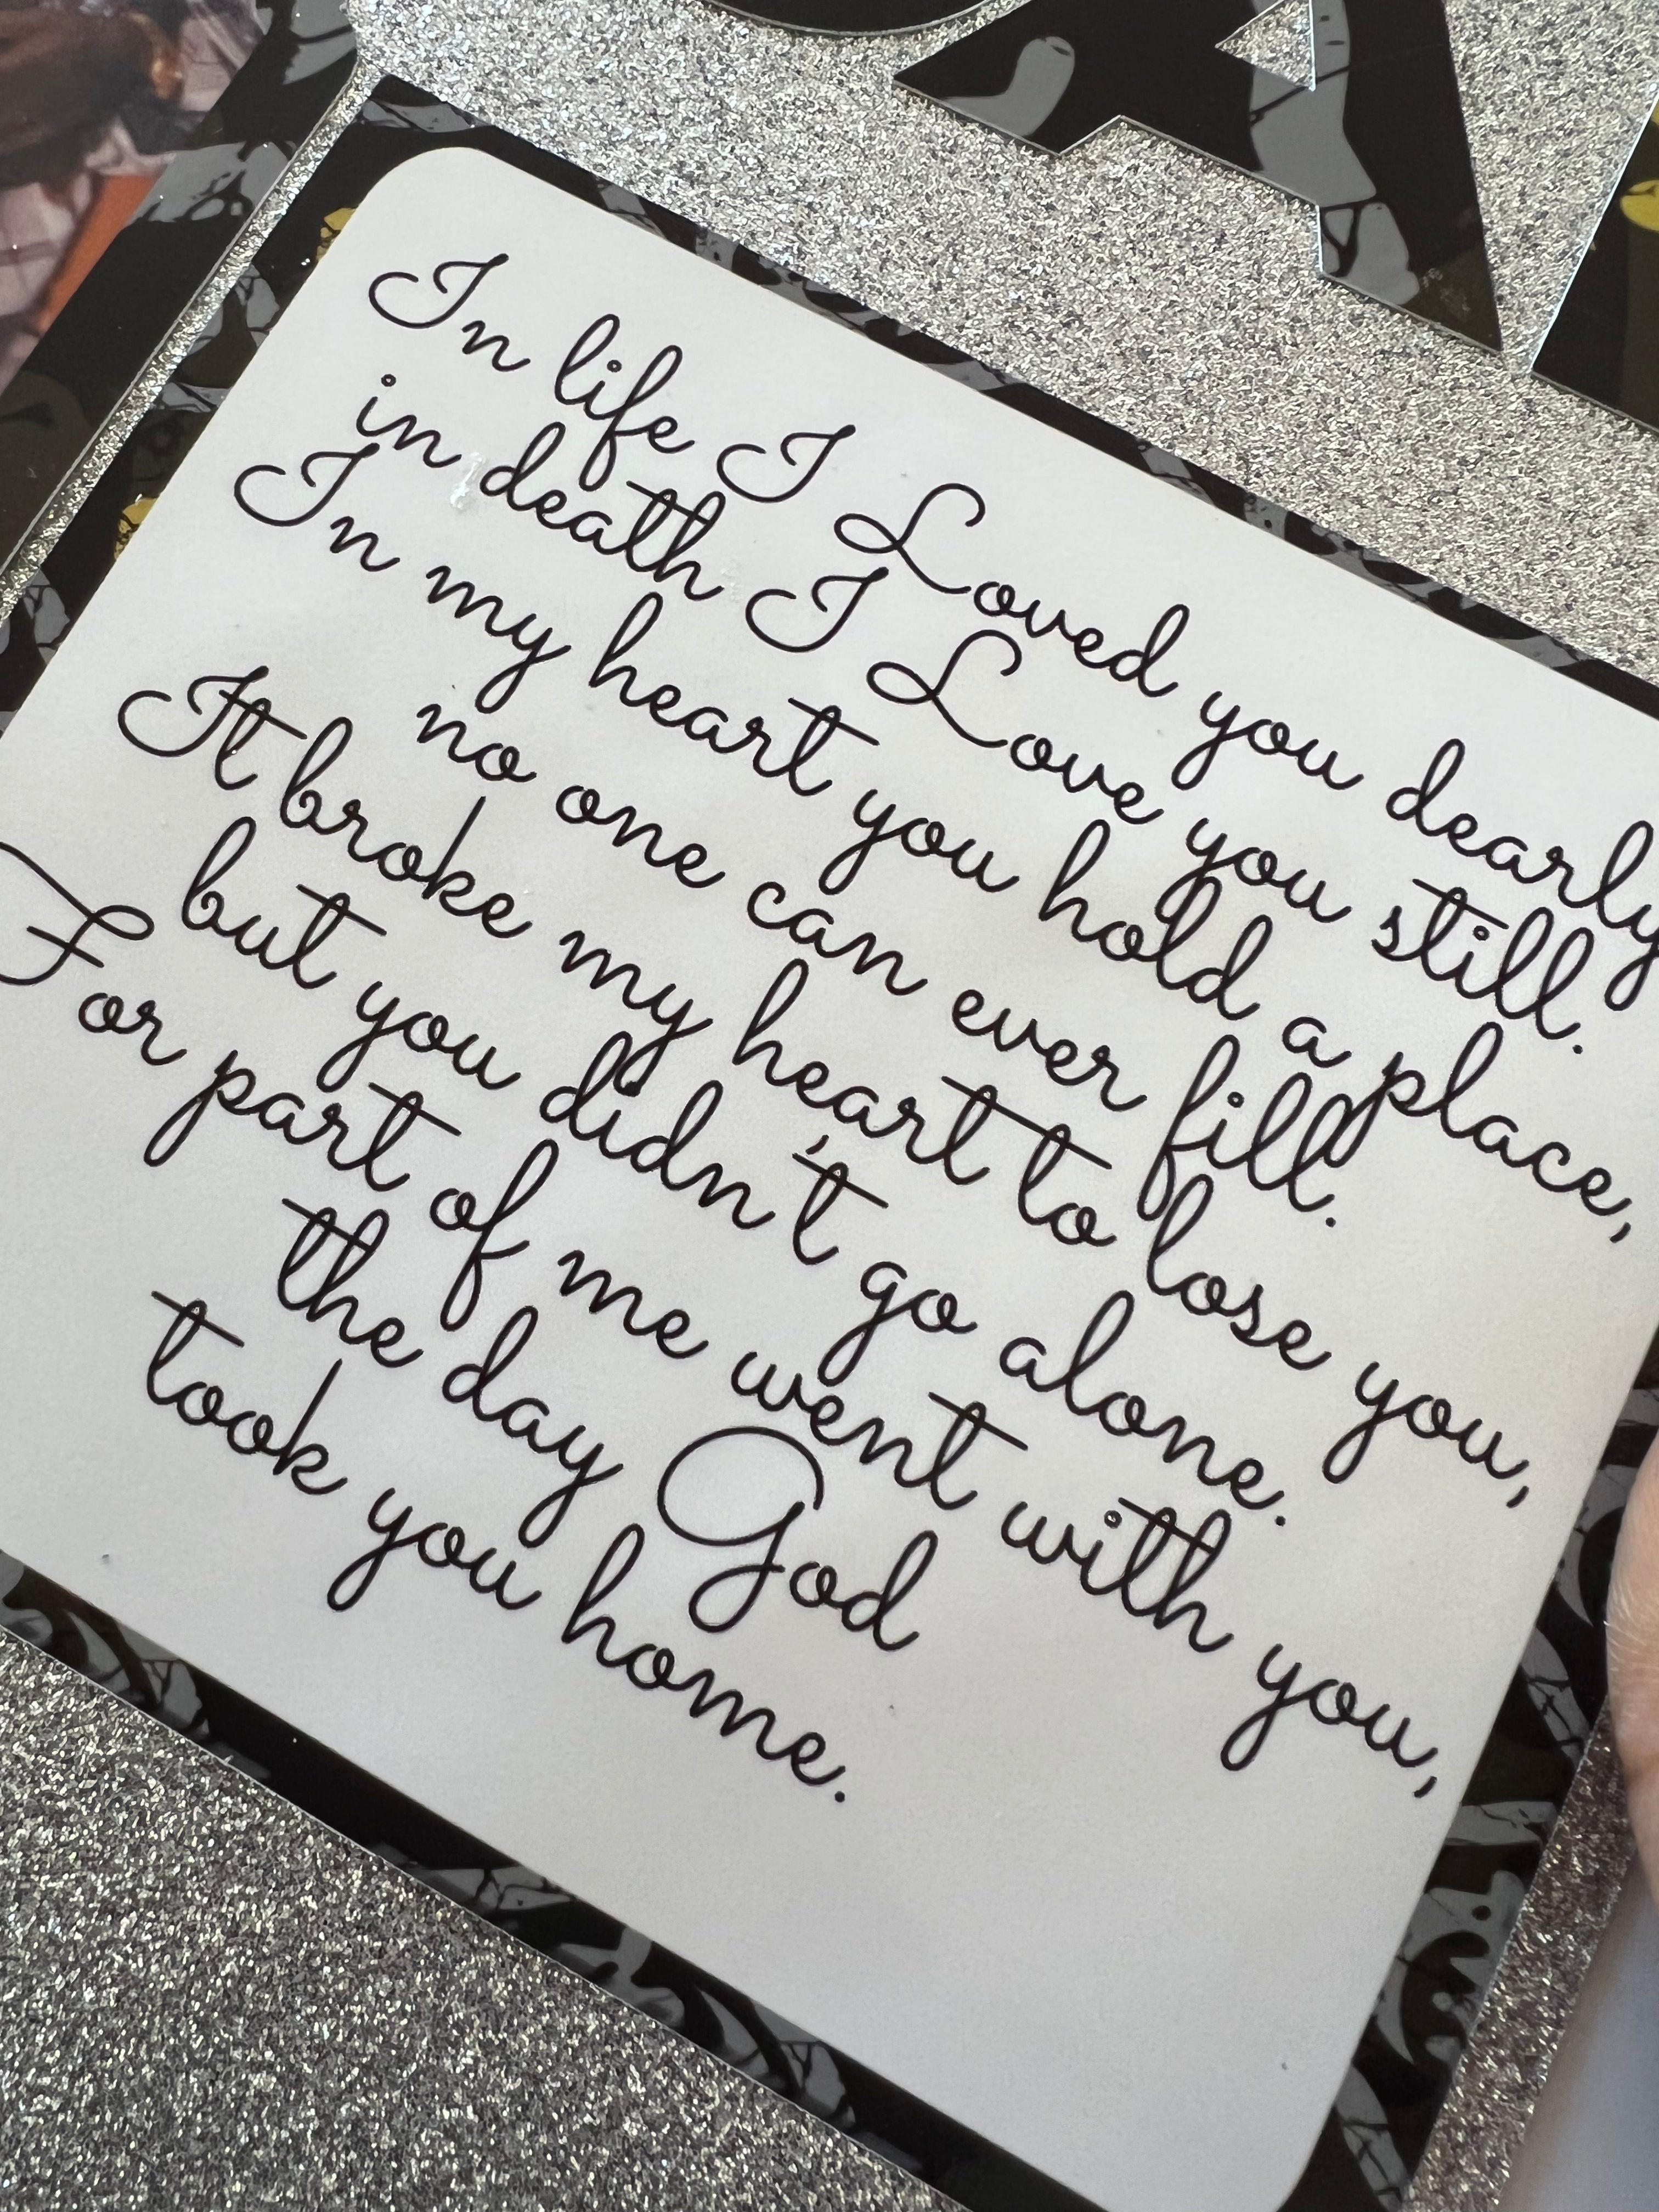 A
In life I Loved you dearly
in death I Love you still.
In my heart you hold a place,
no one can ever fill.
It broke my heart to lose you,
but you didn't go alone.
For part of me went with you,
the day God
took you home.